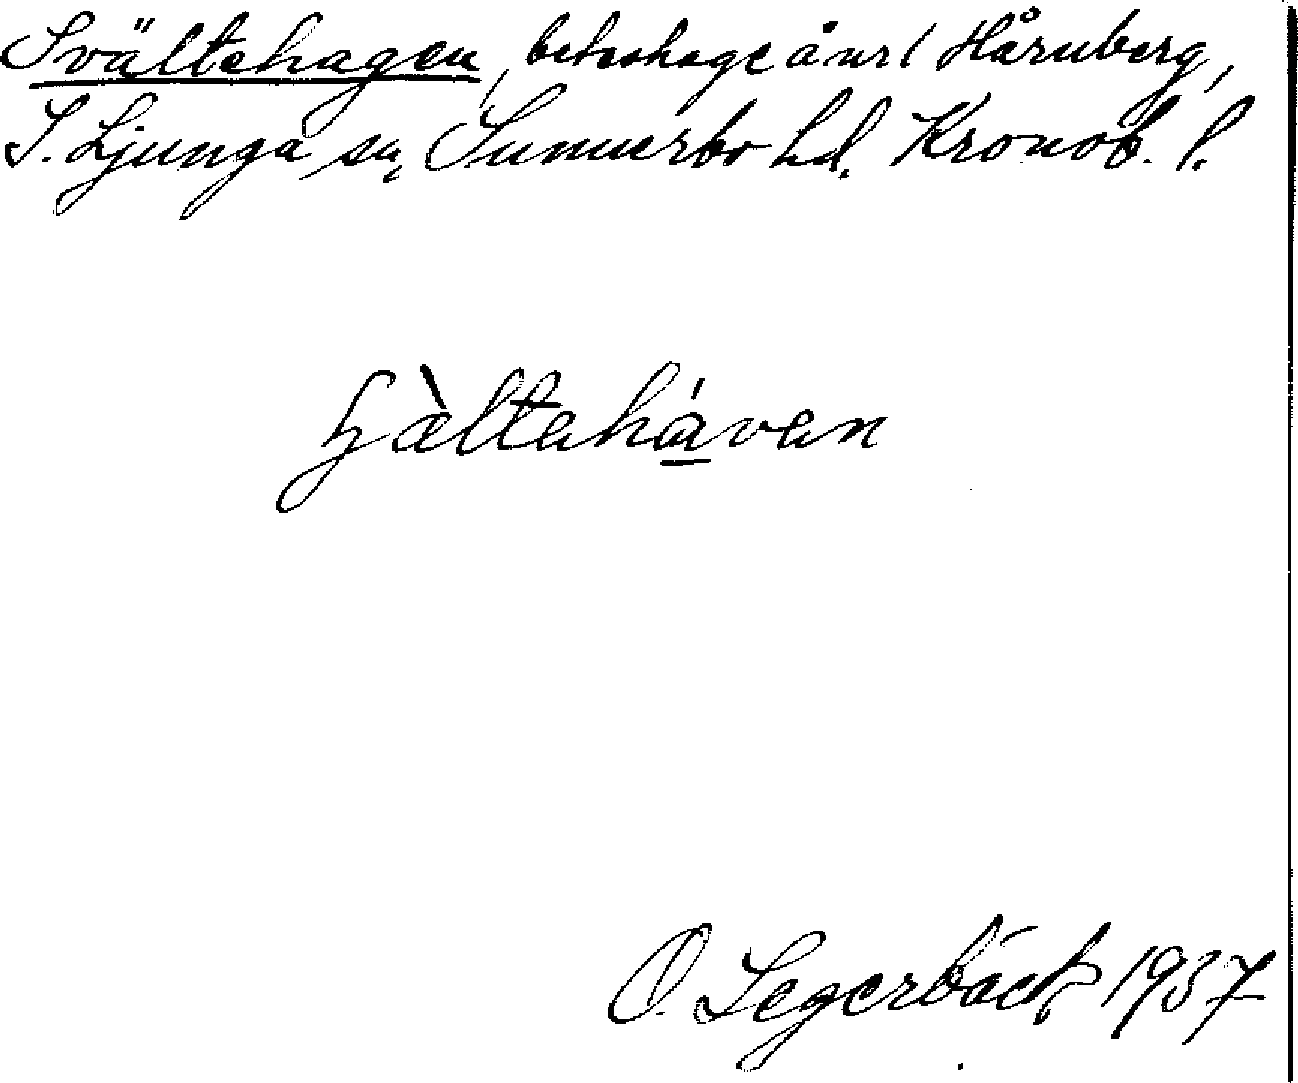 Svältehagen, beteshage å nr 1 Hårnberg,
S. Ljunga sn, Sunnerbo hd. Kronob. l.
hàltahávan
O. Segerbäck 1937